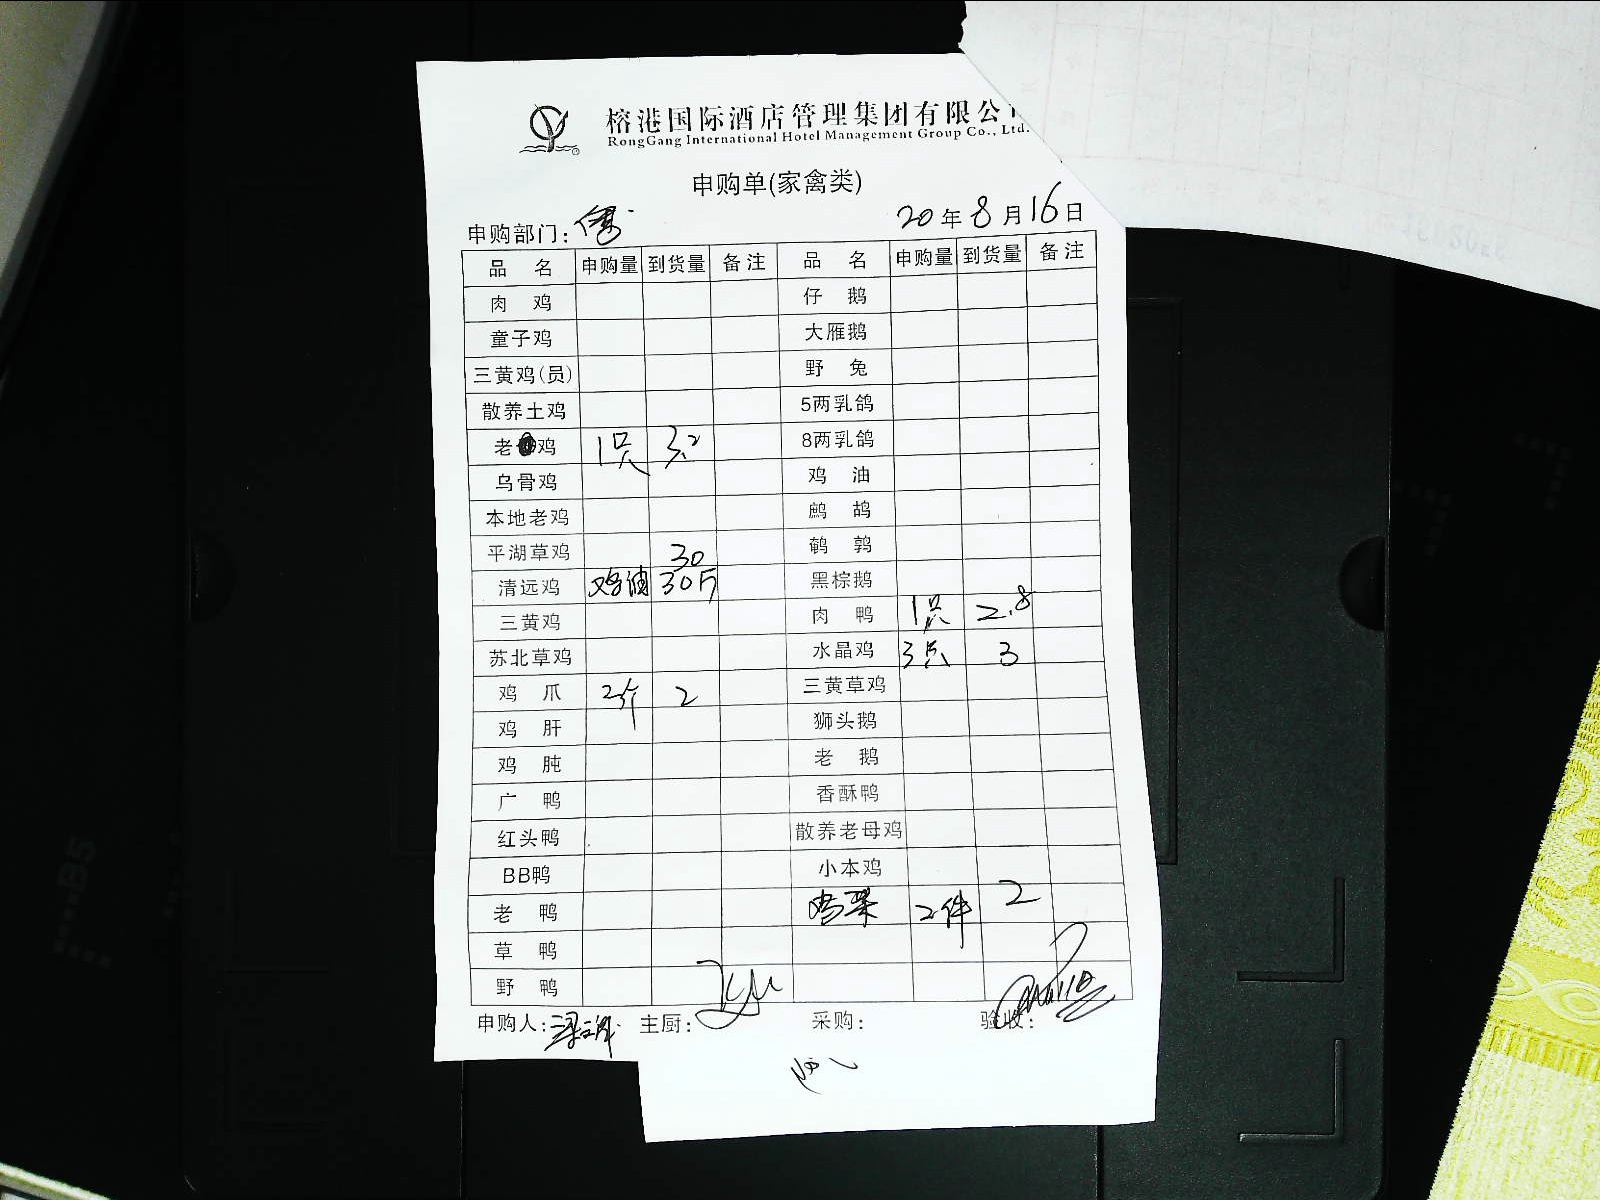 榕港国际酒店管理集团有限公
RongGang International Hotel Management Group Co., Ltd.
申购单(家禽类)
申购部门: 20年8月16日
品名 申购量 到货量 备注 品名 申购量 到货量 备注
肉鸡 仔鹅
童子鸡 大雁鹅
三黄鸡(员) 野兔
散养土鸡 5两乳鸽
老鸡 1只 3.2 8两乳鸽
乌骨鸡 鸡油
本地老鸡 鹧鸪
平湖草鸡 30 鹌鹑
清远鸡 鸡油 30斤 黑棕鹅
三黄鸡 肉鸭 1只 2.8
苏北草鸡 水晶鸡 3只 3
鸡爪 2斤 2 三黄草鸡
鸡肝 狮头鹅
鸡肫 老鹅
广鸭 香酥鸭
红头鸭 散养老母鸡
BB鸭 小本鸡
老鸭 2件 2
草鸭
野鸭
申购人: 主厨: 采购: 验收: